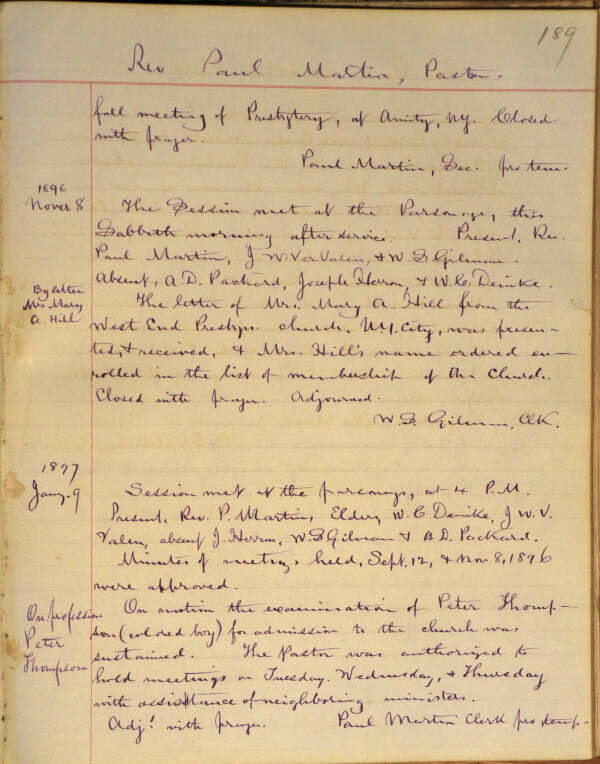 189
Rev Paul Martin, Pastor.
fall meeting of Presbytery, at Amity, NY. Closed
with prayer.
Paul Martin, Sec. pro tem.
1896
Nover 8
The Session met at the Parsonage, this
Sabbath morning after service. Present, Rev.
Paul Martin, J. W. Ver Valen, & W. S. Gilman.
Absent, A. D. Packard, Joseph Herron, & W. C. Demke.
By letter
Mrs. Mary
A. Hill
The letter of Mrs. Mary A. Hill from the
West End Presbyn. church, N.Y. City, was presen-
ted, & received, & Mrs. Hill's name ordered en-
rolled in the list of membership of the Church.
Closed with prayer. Adjourned.
W. S. Gilman, Clk.
1897
Jany. 9
Session met at the parsonage, at 4 P.M.
Present, Rev. P. Martin, Elders W. C. Demke, J. W. V.
Valen, absent J. Herron, W. S. Gilman & B. D. Packard.
Minutes of meetings held, Sept. 12, & Nov 8, 1896
were approved.
On profession
Peter
Thompson
On motion the examination of Peter Thomp-
son (colored boy) for admission to the church was
sustained. The Pastor was authorized to
hold meetings on Tuesday. Wednesday, & Thursday
with assistance of neighboring ministers.
Adjd. with prayer. Paul Martin Clerk pro temp-